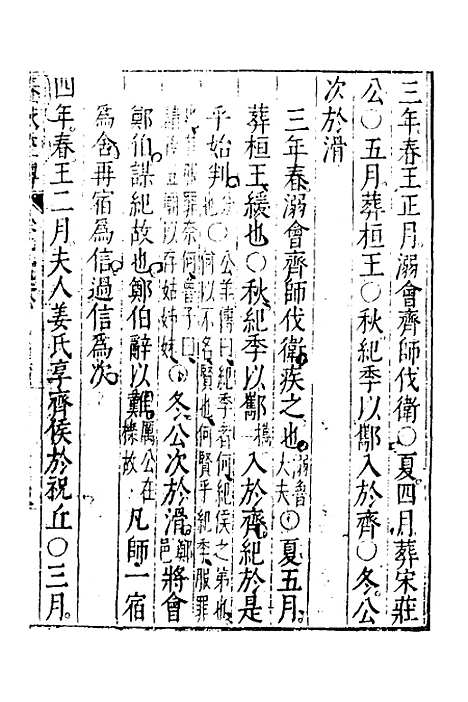 三年春王正月溺會齊師伐衛○夏四月葬宋莊
公○五月葬桓王○秋紀季以酅入於齊○冬公
次於滑
三年春溺會齊師伐衛疾之也溺魯大夫○夏五月
葬桓王緩也○秋紀季以酅入於齊紀於是
乎始判○公羊傳曰紀季者何紀侯之弟也何以不名賢也何賢乎紀季服罪也其服罪奈何魯子曰請後五廟以存姑姊妹○冬公次於滑鄭邑將會
鄭伯謀紀故也鄭伯辭以難厲公在櫟故凡師一宿
為舍再宿為信過信為次
四年春王二月夫人姜氏享齊侯於祝丘○三月